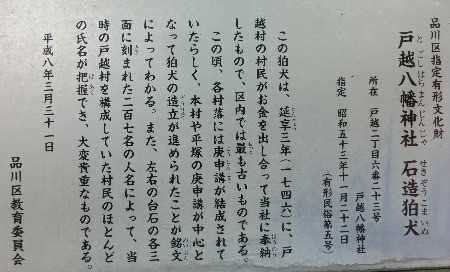 品川区指定有形文化財
戸越八幡神社 石造狛犬
とごしはちまんじんじゃ せきぞうこまいぬ
所在 戸越二丁目六番二十三号
戸越八幡神社
指定 昭和五十三年十一月二十二日
(有形民俗第五号)
この狛犬は、延享三年(一七四六)に、戸
越村の村民がお金を出し合って当社に奉納
したもので、区内では最も古いものである。
この頃、各村落には庚申講が結成されて
いたらしく、本村や平塚の庚申講が中心と
なって狛犬の造立が進められたことが銘文
によってわかる。また、左右の台石の各三
面に刻まれた二百七名の人名によって、当
時の戸越村を構成していた村民のほとんど
の氏名が把握でき、大変貴重なものである。
平成八年三月三十一日
品川区教育委員会